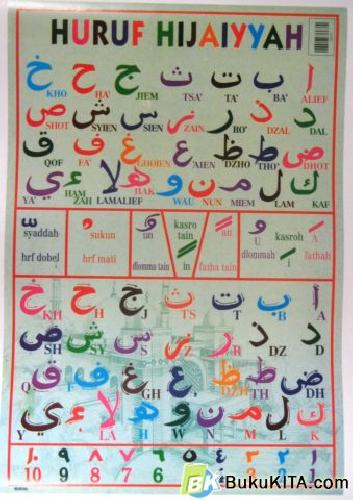 HURUF HIJAIYYAH
ا ب ت ث ج ح خ
ALIEF BA' TA' TSA' JIEM HA' KHO
د ذ ر ز س ش ص
DAL DZAL RO' ZAIN SIEN SYIEN SHOT
ض ط ظ ع غ ف ق
DHOT THO' DZHO 'AIEN GHOIEN FA' QOF
ك ل م ن و ه لا ء ي
KAF LAM MIEM NUN WAU HAK LAMALIEF HAM ZAH YA'
syaddah
hrf dobel
sukun
hrf mati
un
dlomma tain
kasro tain
in
an
fatha tain
U
dlommah
kasroh
i
A
fathah
ا ب ت ث ج ح خ
A B T TS J H KH
د ذ ر ز س ش ص
D DZ R Z S SY SH
ض ط ظ ع غ ف ق
DH TH DZH ' GH F Q
ك ل م ن و ه لا ء ي
K L M N W H LA ' Y
١ ٢ ٣ ٤ ٥ ٦ ٧ ٨ ٩ ١٠
1 2 3 4 5 6 7 8 9 10
BK BukuKITA.com